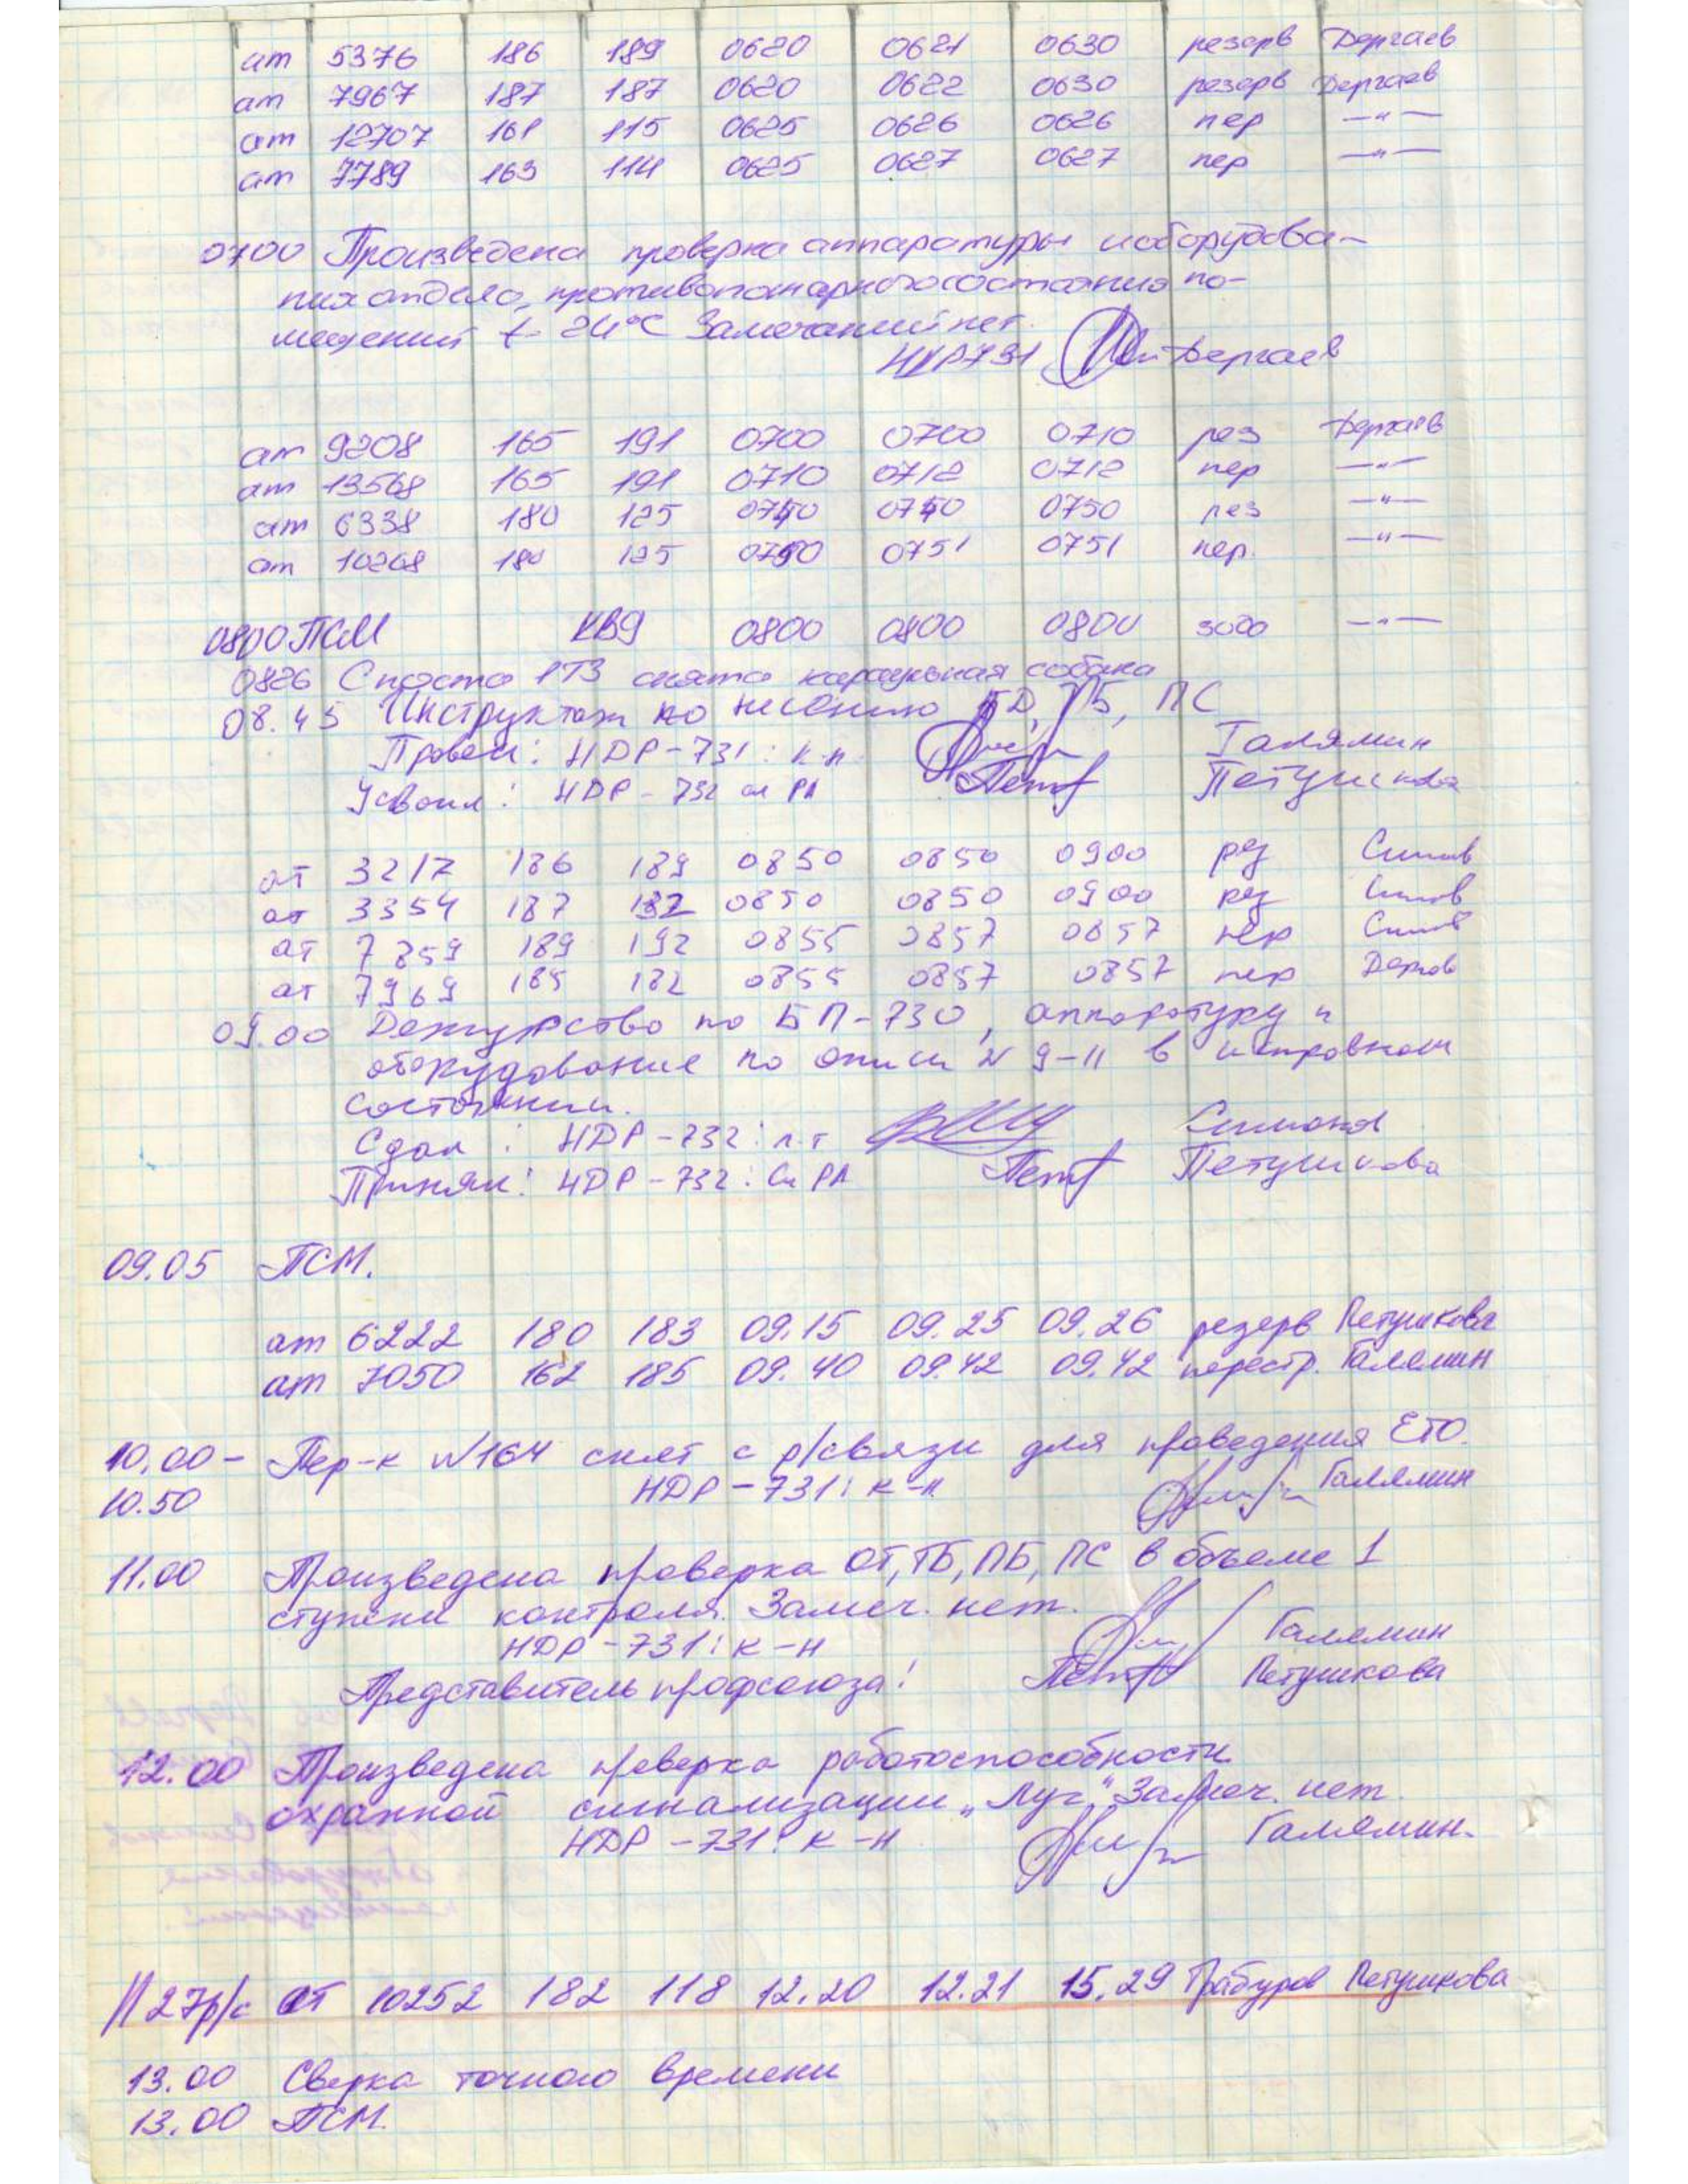 ат 5376 186 189 0620 0621 0630 резерв Дергаев
ат 7967 187 187 0620 0622 0630 резерв Дергаев
ат 12707 168 115 0625 0626 0626 пер —"—
ат 7789 163 114 0625 0627 0627 пер —"—
0700 Произведена проверка аппаратуры и оборудова-
ния отдела, противопожарного состояния по-
мещений t- 24°C Замечаний нет.
НДР731 Дергаев
ат 9208 165 191 0700 0700 0710 рез Дергаев
ат 13568 165 191 0710 0712 0712 пер —"—
ат 6338 180 125 0740 0740 0750 рез —"—
ат 10268 180 125 0750 0751 0751 пер. —"—
0800 ПСМ КВ9 0800 0800 0800 —"—
0826 С поста РТЗ снята караульная собака
08.45 Инструктаж по несению БД, ТБ, ПС
Провел: НДР-731: к-н Галямин
Усвоил: НДР-732 сл РА Петушкова
ат 3217 186 189 0850 0850 0900 рез Симов
ат 3354 187 187 0850 0850 0900 рез Симов
ат 7859 189 192 0855 0857 0857 пер Симов
ат 7969 185 182 0855 0857 0857 пер
09.00 Дежурство по БП-730, аппаратуру и
оборудование по описи № 9-11 в исправном
состоянии.
Сдал: НДР-732: л-т
Принял: НДР-732: Сл РА Петушкова
09.05 ПСМ.
ат 6222 180 183 09.15 09.25 09.26 резерв Петушкова
ат 7050 162 185 09.40 09.42 09.42 перестр. Галямин
10.00- Пер-к №164 снят с р/связи для проведения ЕТО.
10.50 НДР-731: к-н Галямин
11.00 Произведена проверка ОТ, ТБ, ПБ, ПС в объеме 1
ступени контроля. Замеч. нет.
НДР-731: к-н Галямин
Представитель профсоюза: Петушкова
12.00 Произведена проверка работоспособности
охранной сигнализации „Луч". Замеч. нет.
НДР-731: к-н Галямин.
27р/с ат 10252 182 118 12.20 12.21 15.29 Петушкова
13.00 Сверка точного времени
13.00 ПСМ.